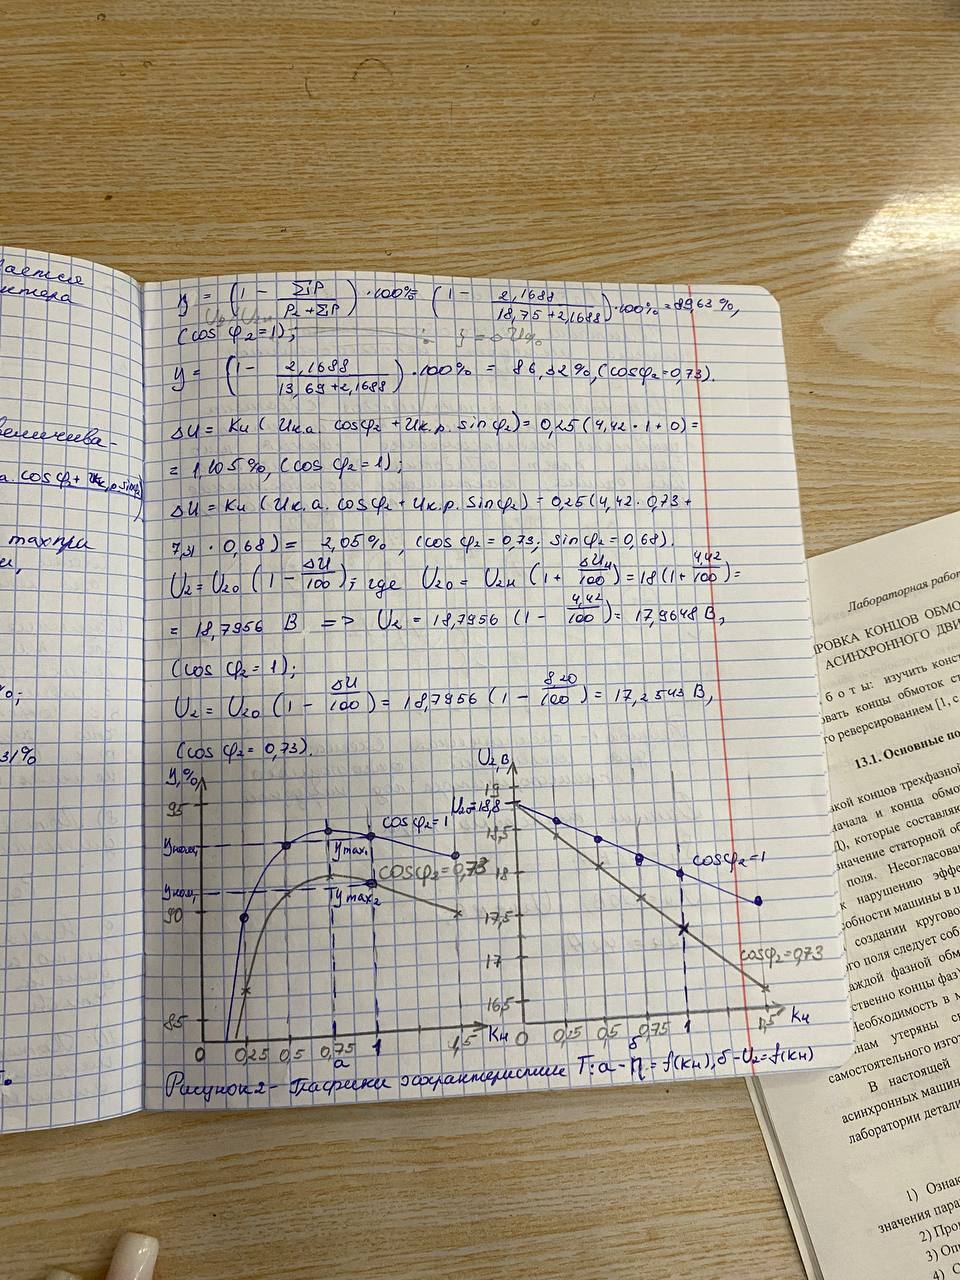 дается
метера
величива-
а. cos φ₂ + Uк.р. sin φ₂)
max при
%;
31%
η = (1 - ΣP / P₂+ΣP) · 100% (1 - 2,1688 / 18,75+2,1688) · 100% = 89,63%,
(cos φ₂=1);
η = (1 - 2,1688 / 13,69+2,1688) · 100% = 86,32%, (cosφ₂=0,73).
ΔU = Kн (Uк.а. cosφ₂ + Uк.р. sin φ₂) = 0,25 (4,42 · 1 + 0) =
= 1,105%, (cos φ₂=1);
ΔU = Kн (Uк.а. cosφ₂ + Uк.р. sinφ₂) = 0,25 (4,42 · 0,73 +
7,31 · 0,68) = 2,05%, (cosφ₂=0,73; sinφ₂=0,68).
U₂ = U₂₀ (1 - ΔU/100); где U₂₀ = U₂н (1 + ΔUн/100) = 18 (1 + 4,42/100) =
= 18,7956 В => U₂ = 18,7956 (1 - 4,42/100) = 17,9648 В,
(cos φ₂=1);
U₂ = U₂₀ (1 - ΔU/100) = 18,7956 (1 - 8,20/100) = 17,2543 В,
(cos φ₂=0,73).
η,%
95
ηном₁
ηном₂
90
85
cosφ₂=1
ηmax₁
cosφ₂=0,73
ηmax₂
0 0,25 0,5 0,75 1 1,5 Kн
а
U₂,В
19
U₂₀=18,8
18,5
18
17,5
17
16,5
cosφ₂=1
cosφ₂=0,73
0 0,25 0,5 0,75 1 1,5 Kн
б
Рисунок 2 - Графики характеристик Т: а - η = f(Kн), б - U₂=f(Kн)
Лабораторная работ
РОВКА КОНЦОВ ОБМО
АСИНХРОННОГО ДВИ
б о т ы: изучить конст
овать концы обмоток ст
го реверсированием [1, с
13.1. Основные по
кой концов трехфазной
начала и конца обмо
Д), которые составляю
значение статорной об
поля. Несогласова
к нарушению эффе
собности машины в ц
создании кругово
го поля следует соб
каждой фазной обм
ственно концы фаз)
Необходимость в м
нам утеряны сп
самостоятельного изгот
В настоящей
асинхронных машин
лаборатории детали
1) Ознак
значения пара
2) Про
3) Оп
4) С